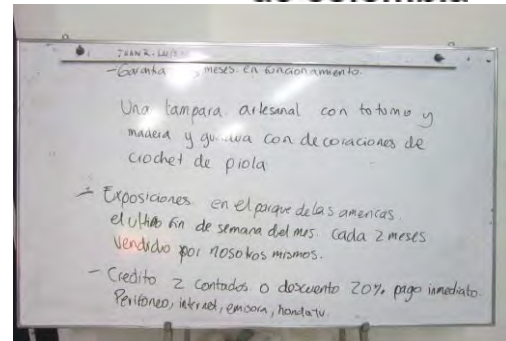 de colombia
JUAN R. LUIS
- Garantia meses. en funcionamiento.
Una lampara artesanal con totumo y
madera y con decoraciones de
crochet de piola
- Exposiciones en el parque de las americas.
el ultimo fin de semana del mes. cada 2 meses
vendido por nosotros mismos.
- Credito 2 contados o descuento 20% pago inmediato.
Perifoneo, internet, emisora,